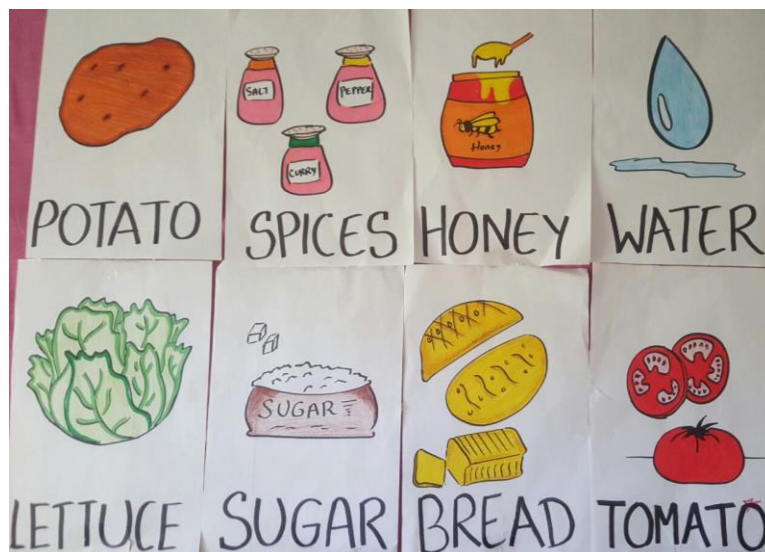 POTATO
SALT
PEPPER
CURRY
SPICES
Honey
HONEY
WATER
LETTUCE
SUGAR
SUGAR
BREAD
TOMATO